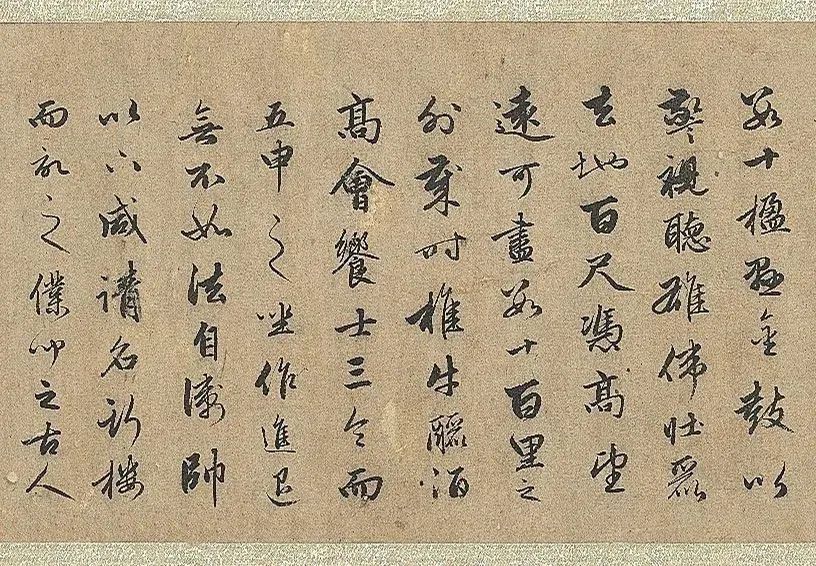 數十楹懸金鼓以
警視聽雄偉壯麗
去地百尺憑高望
遠可盡數十百里之
外歲時椎牛釃酒
高會饗士三令而
五申之坐作進退
無不如法自偏帥
以下咸請名於樓
而記之僕聞之古人